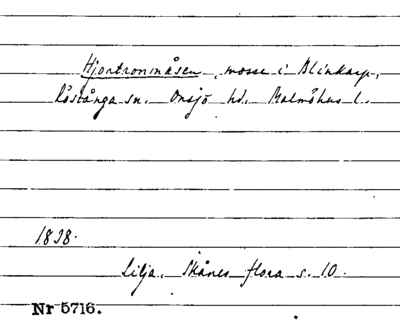 Hjortronmåsen, mosse i Blinkarp,
Röstånga sn. Onsjö hd. Malmöhus l.
1838.
Lilja. Skånes flora s. 10.
Nr 5716.